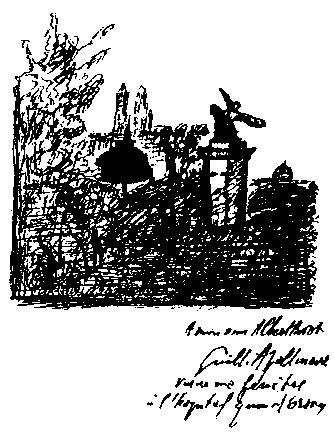 A mon ami Albert Birot
Guill. Apollinaire
vu de ma fenêtre
à l'hopital quai d'Orsay